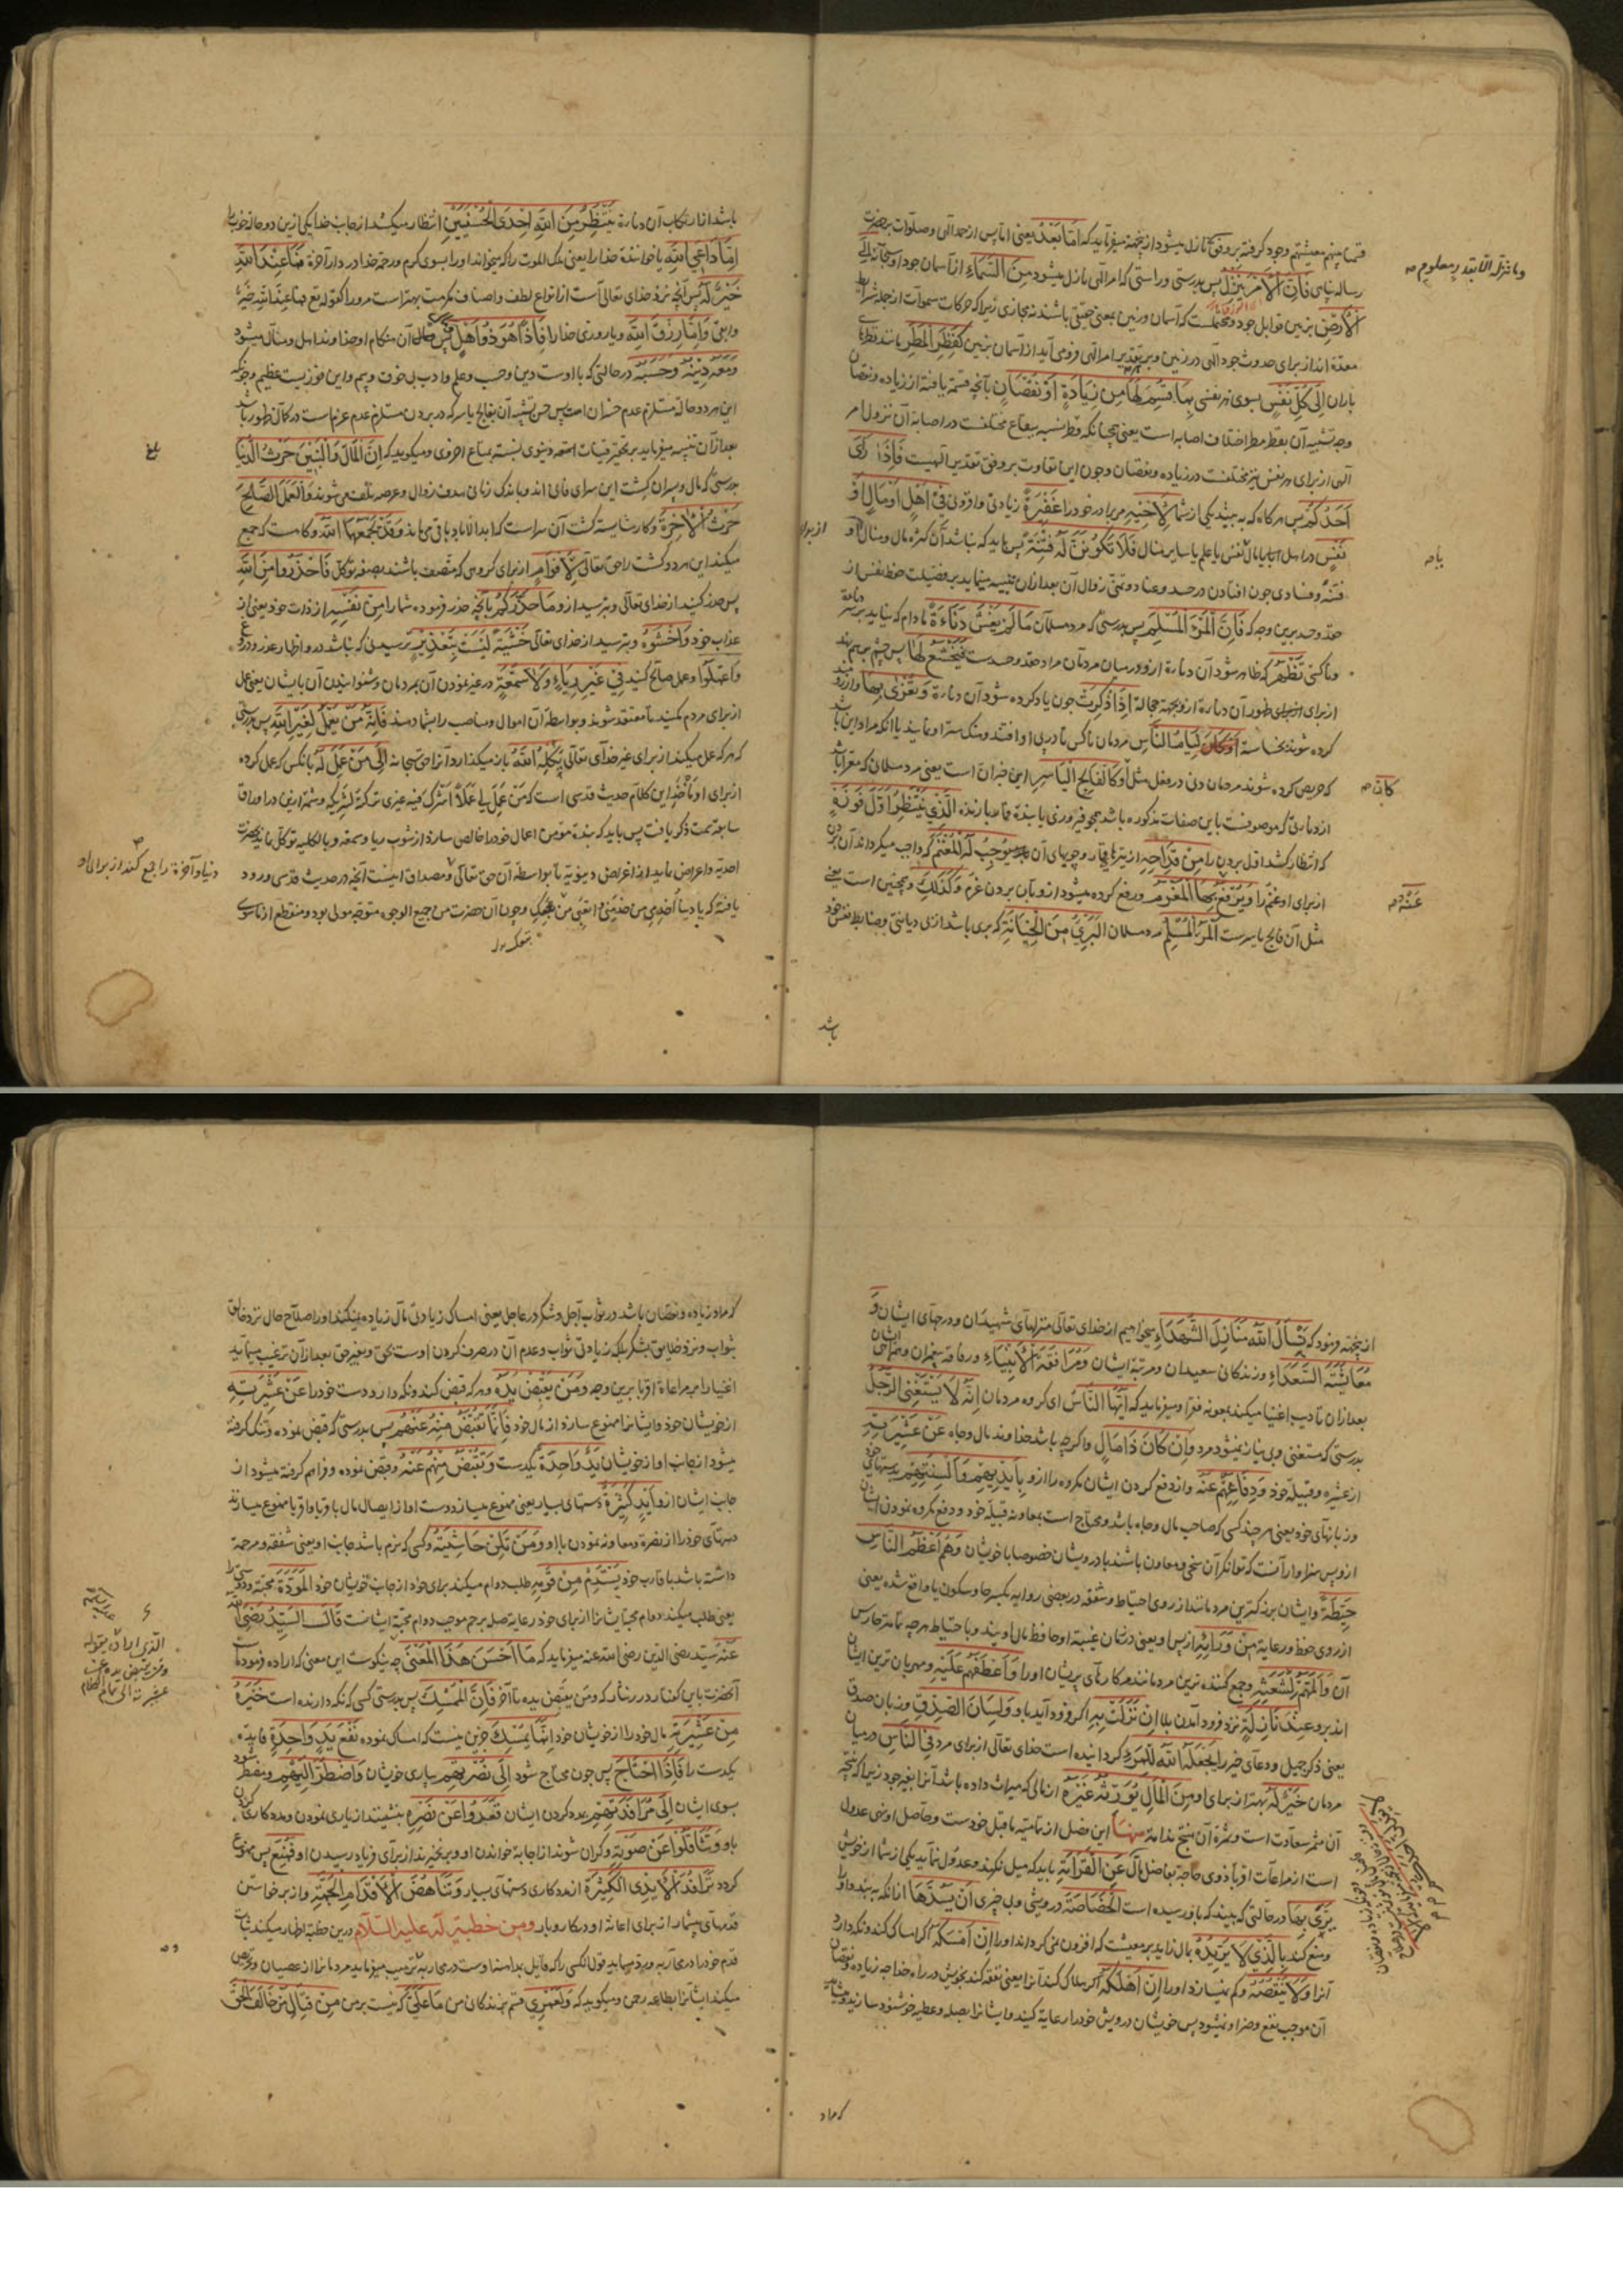 قسمنا بینهم معیشتهم وجود گرفته بر وفق نازل میشود ازینجهة میفرماید که اَمَّا بَعْدُ یعنی اما پس از حمد الهی وصلوات بر حضرت
رسالت پناهی فَاِنَّ الْاَمْرَ یَنْزِلُ پس بدرستی و راستی که امر الهی نازل میشود مِنَ السَّمَاءِ از آسمان جود او سبحانه اِلَی
الْاَرْضِ بزمین قوابل جود و محتملست که آسمان و زمین بمعنی حقیقی باشند نه مجازی زیرا که حرکات سموات از جمله شرایط
معده اند از برای حدوث جود الهی در زمین و بر هر تقدیر امر الهی فرو می آید از آسمان بزمین کَقَطْرِ الْمَطَرِ مانند قطرهای
باران اِلٰی کُلِّ نَفْسٍ بسوی هر نفسی بِمَا قُسِمَ لَهَا مِنْ زِیَادَةٍ اَوْ نُقْصَانٍ بآنچه قسمة یافته از زیاده و نقصان
وجه تشبیه آن بقطر مطر اختلاف اصابه است یعنی همچنانکه قطر نسبه ببقاع مختلفست در اصابه آن نزول امر
الهی از برای هر نفس نیز مختلفست در زیاده و نقصان و چون این تفاوت بر وفق تقدیر الهیست فَاِذَا رَاٰی
اَحَدُکُمْ پس هرگاه که به بیند یکی از شما لِاَخِیْهِ مر برادر خود را غَفِیْرَةً زیادتی و افزونی فِیْ اَهْلٍ اَوْ مَالٍ اَوْ
نَفْسٍ در اهل یا با مال یا نفس یا علم یا سایر منال فَلَا تَکُوْنَنَّ لَهُ فِتْنَةً پس باید که نباشد آن کثرة مال و منال او
فتنه و فسادی چون افتادن در حسد و عناد و تمنی زوال آن بعد از آن تنبیه مینماید بر فضیلت حفظ نفس از
حقد و حسد برین وجه که فَاِنَّ الْمَرْءَ الْمُسْلِمَ پس بدرستی که مرد مسلمان مَا لَمْ یَغْشَ دَنَاءَةً مادام که نیاید بر سر
وناکسی تَظْهَرُ که ظاهر شود آن دناءة ازو در میان مردمان مراد حقد و حسدست فَیَخْشَعُ لَهَا پس چشم بر هم نهد
از برای ظهور آن دناءة ازو بجهة خجالة اِذَا ذُکِرَتْ چون یاد کرده شود آن دناءة وَ تُغْرٰی بِهَا و از رو
کرده شوند بخساسة او لِئَامُ النَّاسِ مردمان ناکس تا در پی او افتند و هتک ستر او نمایند
که حریص کرده شوند مردمان دنی در مغل مثل او کَالْفَالِجِ الْیَاسِرِ این خبر ان است یعنی مرد مسلمان که معرا باشد
از دناءتی که موصوفست باین صفات مذکوره باشد همچو فیروزی یابنده قمار بازنده الَّذِیْ یَنْتَظِرُ اَوَّلَ فَوْزَةٍ
که انتظار کشد اول بردن را مِنْ قِدَاحِهِ از تیرهای قمار و چوبهای آن تُوْجِبُ لَهُ الْمَغْنَمَ که واجب میگرداند آن بردن
از برای او غنم را وَ یُرْفَعُ بِهَا الْمَغْرَمُ و رفع کرده میشود ازو بآن بردن غرم وَ کَذٰلِکَ و همچنین است یعنی
مثل آن فالج یاسرست الْمَرْءُ الْمُسْلِمُ مرد مسلمان الْبَرِیْءُ مِنَ الْخِیَانَةِ که بری باشد از بی دیانتی
وما ننزله الا بقدر معلوم
باشد
باشد از ارتکاب آن دناءة یَنْتَظِرُ مِنَ اللّٰهِ اِحْدَی الْحُسْنَیَیْنِ انتظار میکشد از جانب خدا یکی ازین دو حالة خوب را
اِمَّا دَاعِیَ اللّٰهِ یا خوانندۀ خدا را یعنی ملک الموت را که میخواند او را بسوی کرم و رحمة خدا در دار آخرة فَمَا عِنْدَ اللّٰهِ
خَیْرٌ لَهُ پس آنچه نزد خدای تعالی است از انواع لطف و اصناف مکرمت بهتر است مرو را کقوله تع وما عند الله خیر
وابقی وَ اِمَّا رِزْقَ اللّٰهِ و یا روزی خدا را فَاِذَا هُوَ ذُوْ اَهْلٍ وَ مَالٍ پس آن هنگام او خداوند اهل و مال میشود
وَ مَعَهُ دِیْنُهُ وَ حَسَبُهُ در حالتی که با اوست دین و حسب و علم و ادب بی خوف و بیم و این فوزیست عظیم
این هر دو حالة مستلزم عدم خسران است پس حسن تشبیه آن بفالج یاسر که در بردن مستلزم عدم غرم است در کمال ظهور باشد
بعد از آن تنبیه میفرماید بر تحقیر قنیات امتعه دنیوی نسبة بمتاع اخروی و میگوید که اِنَّ الْمَالَ وَ الْبَنِیْنَ حَرْثُ الدُّنْیَا
بدرستی که مال و پسران کشت این سرای فانی اند و باندک زمانی هدف زوال و عرصه تلف می شوند وَ الْعَمَلَ الصَّالِحَ
حَرْثُ الْاٰخِرَةِ و کار شایسته کشت آن سراست که ابد الاباد باقی می ماند وَ قَدْ یَجْمَعُهُمَا اللّٰهُ و گاهست که جمع
میکند این هر دو کشت را حق تعالی لِاَقْوَامٍ از برای گروهی که متصف باشند بصفة توکل فَاحْذَرُوْا مِنَ اللّٰهِ
پس حذر کنید از خدای تعالی و بترسید ازو مَا حَذَّرَکُمْ بآنچه حذر فرموده شما را مِنْ نَفْسِهِ از ذات خود یعنی از
عذاب خود وَ اخْشَوْهُ و بترسید از خدای تعالی خَشْیَةً لَیْسَتْ بِتَعْذِیْرٍ ترسیدنی که نباشد درو اظهار عذر
وَ اعْمَلُوْا و عمل صالح کنید فِیْ غَیْرِ رِیَاءٍ وَ لَا سُمْعَةٍ در غیر نمودن آن بمردمان و شنوانیدن آن بایشان یعنی عمل
از برای مردم مکنید تا معتقد شوند و بواسطه آن اموال و مناصب را بشما دهند فَاِنَّهُ مَنْ یَعْمَلْ لِغَیْرِ اللّٰهِ پس بدرستی
که هر که عمل میکند از برای غیر خدای تعالی یَکِلْهُ اللّٰهُ باز میگذارد او را حق سبحانه اِلٰی مَنْ عَمِلَ لَهُ بآنکس که عمل کرده
از برای او ماخذ این کلام حدیث قدسی است که مَنْ عَمِلَ لِیْ عَمَلًا اَشْرَکَ فیه غیری ترکته لشریکه و شمۀ ازین در اوراق
سابقه سمت ذکر یافت پس باید که بنده مؤمن اعمال خود را خالص سازد از شوب ریا و سمعه و بالکلیه توکل نماید بحضرت
احدیة و اعراض نماید از اغراض دنیویه تا بواسطه آن حق تعالی و مصداق اینست آنچه در حدیث قدسی ورود
یافته که یا دنیا اخدمی من خدمنی و اتعبی من خدمک و چون آن حضرت من جمیع الوجوه متوجه مولی بود و منقطع از ماسوی
دنیا و آخرة را جمع کند از برای او
بلغ
ازینجهة فرمود که نَسْاَلُ اللّٰهَ مَنَازِلَ الشُّهَدَاءِ میخواهیم از خدای تعالی منزلهای شهیدان و درجهای ایشان وَ
مُعَایَشَةَ السُّعَدَاءِ و زندگانی سعیدان و مرتبه ایشان وَ مُرَافَقَةَ الْاَنْبِیَاءِ و رفاقة پیغمبران و همراهی ایشان
بعد از آن تادیب اغنیا میکند بمعونه فقرا و میفرماید که اَیُّهَا النَّاسُ ای گروه مردمان اِنَّهُ لَا یَسْتَغْنِی الرَّجُلُ
بدرستی که مستغنی و بی نیاز نمیشود مرد وَ اِنْ کَانَ ذَا مَالٍ و اگرچه باشد خداوند مال و جاه عَنْ عَشِیْرَتِهِ
از عشیره و قبیله خود وَ دِفَاعِهِمْ عَنْهُ و از دفع کردن ایشان مکروه را ازو بِاَیْدِیْهِمْ وَ اَلْسِنَتِهِمْ بدستهای خود
و زبانهای خود یعنی هر چند کسی که صاحب مال و جاه باشد محتاج است بمعاونه قبیله خود و دفع مکروه نمودن ایشان
ازو پس سزاوار آنست که توانگران سخی و معاون باشند با درویشان خصوصا با خویشان وَ هُمْ اَعْظَمُ النَّاسِ
حِیْطَةً و ایشان بزرگترین مردمانند از روی احتیاط و شفقه و در بعضی روایه بکسر حا و سکون یا واقع شده یعنی
از روی حفظ و رعایة مِنْ وَرَائِهِ از پس او یعنی در زمان غیبة او حافظ مال اویند و باحتیاط هرچه تمامتر حارس
آن وَ اَلَمُّهُمْ لِشَعَثِهِ و جمع کننده ترین مردمانند مر کارهای پریشان او را وَ اَعْطَفُهُمْ عَلَیْهِ و مهربان ترین ایشان
اند برو عِنْدَ نَازِلَةٍ نزد فرود آمدن بلا اِنْ نَزَلَتْ بِهِ اگر فرود آید باو وَ لِسَانُ الصِّدْقِ و زبان صدق
یعنی ذکر جمیل و دعای خیر را یَجْعَلُهُ اللّٰهُ لِلْمَرْءِ گردانیده است خدای تعالی از برای مرد فِی النَّاسِ در میان
مردمان خَیْرٌ لَهُ بهتر از برای او مِنَ الْمَالِ یُوَرِّثُهُ غَیْرَهُ از مالی که میراث داده باشد آنرا بغیر خود زیرا که نتیجه
آن مثمر سعادت است و ثمرۀ آن منتج ندامة منها این فصل از تتمه ماقبل خودست و حاصل او نهی عدول
است از مراعات اقربا ذوی حاجة بفاضل مال عَنِ الْقَرَابَةِ باید که میل نکند و عدول ننماید یکی از شما از خویش
یَرٰی بِهَا در حالتی که بیند که باو رسیده است الْخَصَاصَةَ درویشی و بی چیزی اَنْ یَسُدَّهَا از آنکه به بندد او را
و منع کند بِالَّذِیْ لَا یَزِیْدُهُ بمال زاید بر معیشت که افزون نمی گرداند او را اِنْ اَمْسَکَهُ اگر امساک کند و نگه دارد
آنرا وَ لَا یَنْقُصُهُ و کم نمیسازد او را اِنْ اَهْلَکَهُ اگر هلاک کند آنرا یعنی نفقه کند بخویش در راه خدا چه زیاده و نقصان
آن موجب نفع و ضرر او نمیشود پس خویشان درویش خود را رعایة کنید و ایشانرا بصله و عطیه خوشنود سازید
که مراد
که مراد زیاده و نقصان باشد در ثواب آجل و شکر در عاجل یعنی امساک زیادتی مال زیاده نمیکند او را صلاح حال نزد خالق
بثواب و نزد خلایق بشکر بلکه زیادتی ثواب و عدم آن در صرف کردن اوست بحق و بغیر حق بعد از آن ترغیب مینماید
اغنیا را بمراعاة اقربا برین وجه وَ مَنْ یَقْبِضْ یَدَهُ و هر که قبض کند و نگه دارد دست خود را عَنْ عَشِیْرَتِهِ
از خویشان خود و ایشانرا ممنوع سازد از مال خود فَاِنَّمَا تُقْبَضُ مِنْهُ عَنْهُمْ پس بدرستی که قبض نموده و تنک گرفته
میشود از جانب او از خویشان یَدٌ وَاحِدَةٌ یکدست وَ تُقْبَضُ مِنْهُمْ عَنْهُ و قبض نموده و فراهم گرفته میشود از
جانب ایشان ازو اَیْدٍ کَثِیْرَةٌ دستهای بسیار یعنی ممنوع میسازد دست او از ایصال مال باقربا و اقربا ممنوع میسازند
دستهای خود را از نصرة و معاونه نمودن با او وَ مَنْ تَلِنْ حَاشِیَتُهُ و کسی که نرم باشد جانب او یعنی شفقه و مرحمة
داشته باشد با اقارب خود یَسْتَدِمْ مِنْ قَوْمِهِ طلب دوام میکند برای خود از جانب خویشان خود الْمَوَدَّةَ محبة و دوستی را
یعنی طلب میکند دوام محبة ایشانرا از برای خود چه رعایة صله رحم موجب دوام محبة ایشانست قَالَ السَّیِّدُ رَضِیَ اللّٰهُ
عَنْهُ سید رضی الدین رضی الله عنه میفرماید که مَا اَحْسَنَ هٰذَا الْمَعْنٰی چه نیکوست این معنی که اراده فرموده است
آنحضرت باین گفتار درر نثار که ومن یقبض یده تا آخر فَاِنَّ الْمُمْسِکَ پس بدرستی کسی که نگه دارنده است خَیْرَهُ
مِنْ عَشِیْرَتِهِ مال خود را از خویشان خود اِنَّمَا یُمْسِکُ جزین نیست که امساک نموده نَفْعَ یَدٍ وَاحِدَةٍ فایده
یکدست را فَاِذَا احْتَاجَ پس چون محتاج شود اِلٰی نُصْرَتِهِمْ بیاری خویشان وَ اضْطُرَّ اِلَیْهِمْ و مضطر شود
بسوی ایشان اِلٰی مُرَافَدَتِهِمْ بمدد کردن ایشان قَعَدُوْا عَنْ نَصْرِهِ بنشینند از یاری نمودن و مددکاری کردن
باو وَ تَثَاقَلُوْا عَنْ صَوْتِهِ و گران شوند از اجابة خواندن او و برنخیزند از برای فریاد رسیدن او فَمُنِعَ پس ممنوع
گردد تَرَافُدَ الْاَیْدِی الْکَثِیْرَةِ از مددکاری دستهای بسیار وَ تَنَاهُضَ الْاَقْدَامِ الْجَمَّةِ و از برخاستن
قدمهای بیشمار از برای اعانة او در کار و بار ومن خطبة له علیه السلام درین خطبه اظهار میکند ثبات
قدم خود را در محاربه و رد مینماید قول آنکس را که قایل بمداهنه اوست در محاربه و ترهیب میفرماید مردمانرا از عصیان و تحریص
میکند ایشانرا بطاعة رحمن و میگوید که وَ لَعَمْرِیْ قسم بزندگانی من مَا عَلَیَّ که نیست بر من مِنْ قِتَالِ مَنْ خَالَفَ الْحَقَّ
الذی اراده بقوله
ومن یقبض یده عن
عشیرته الی تمام الکلام